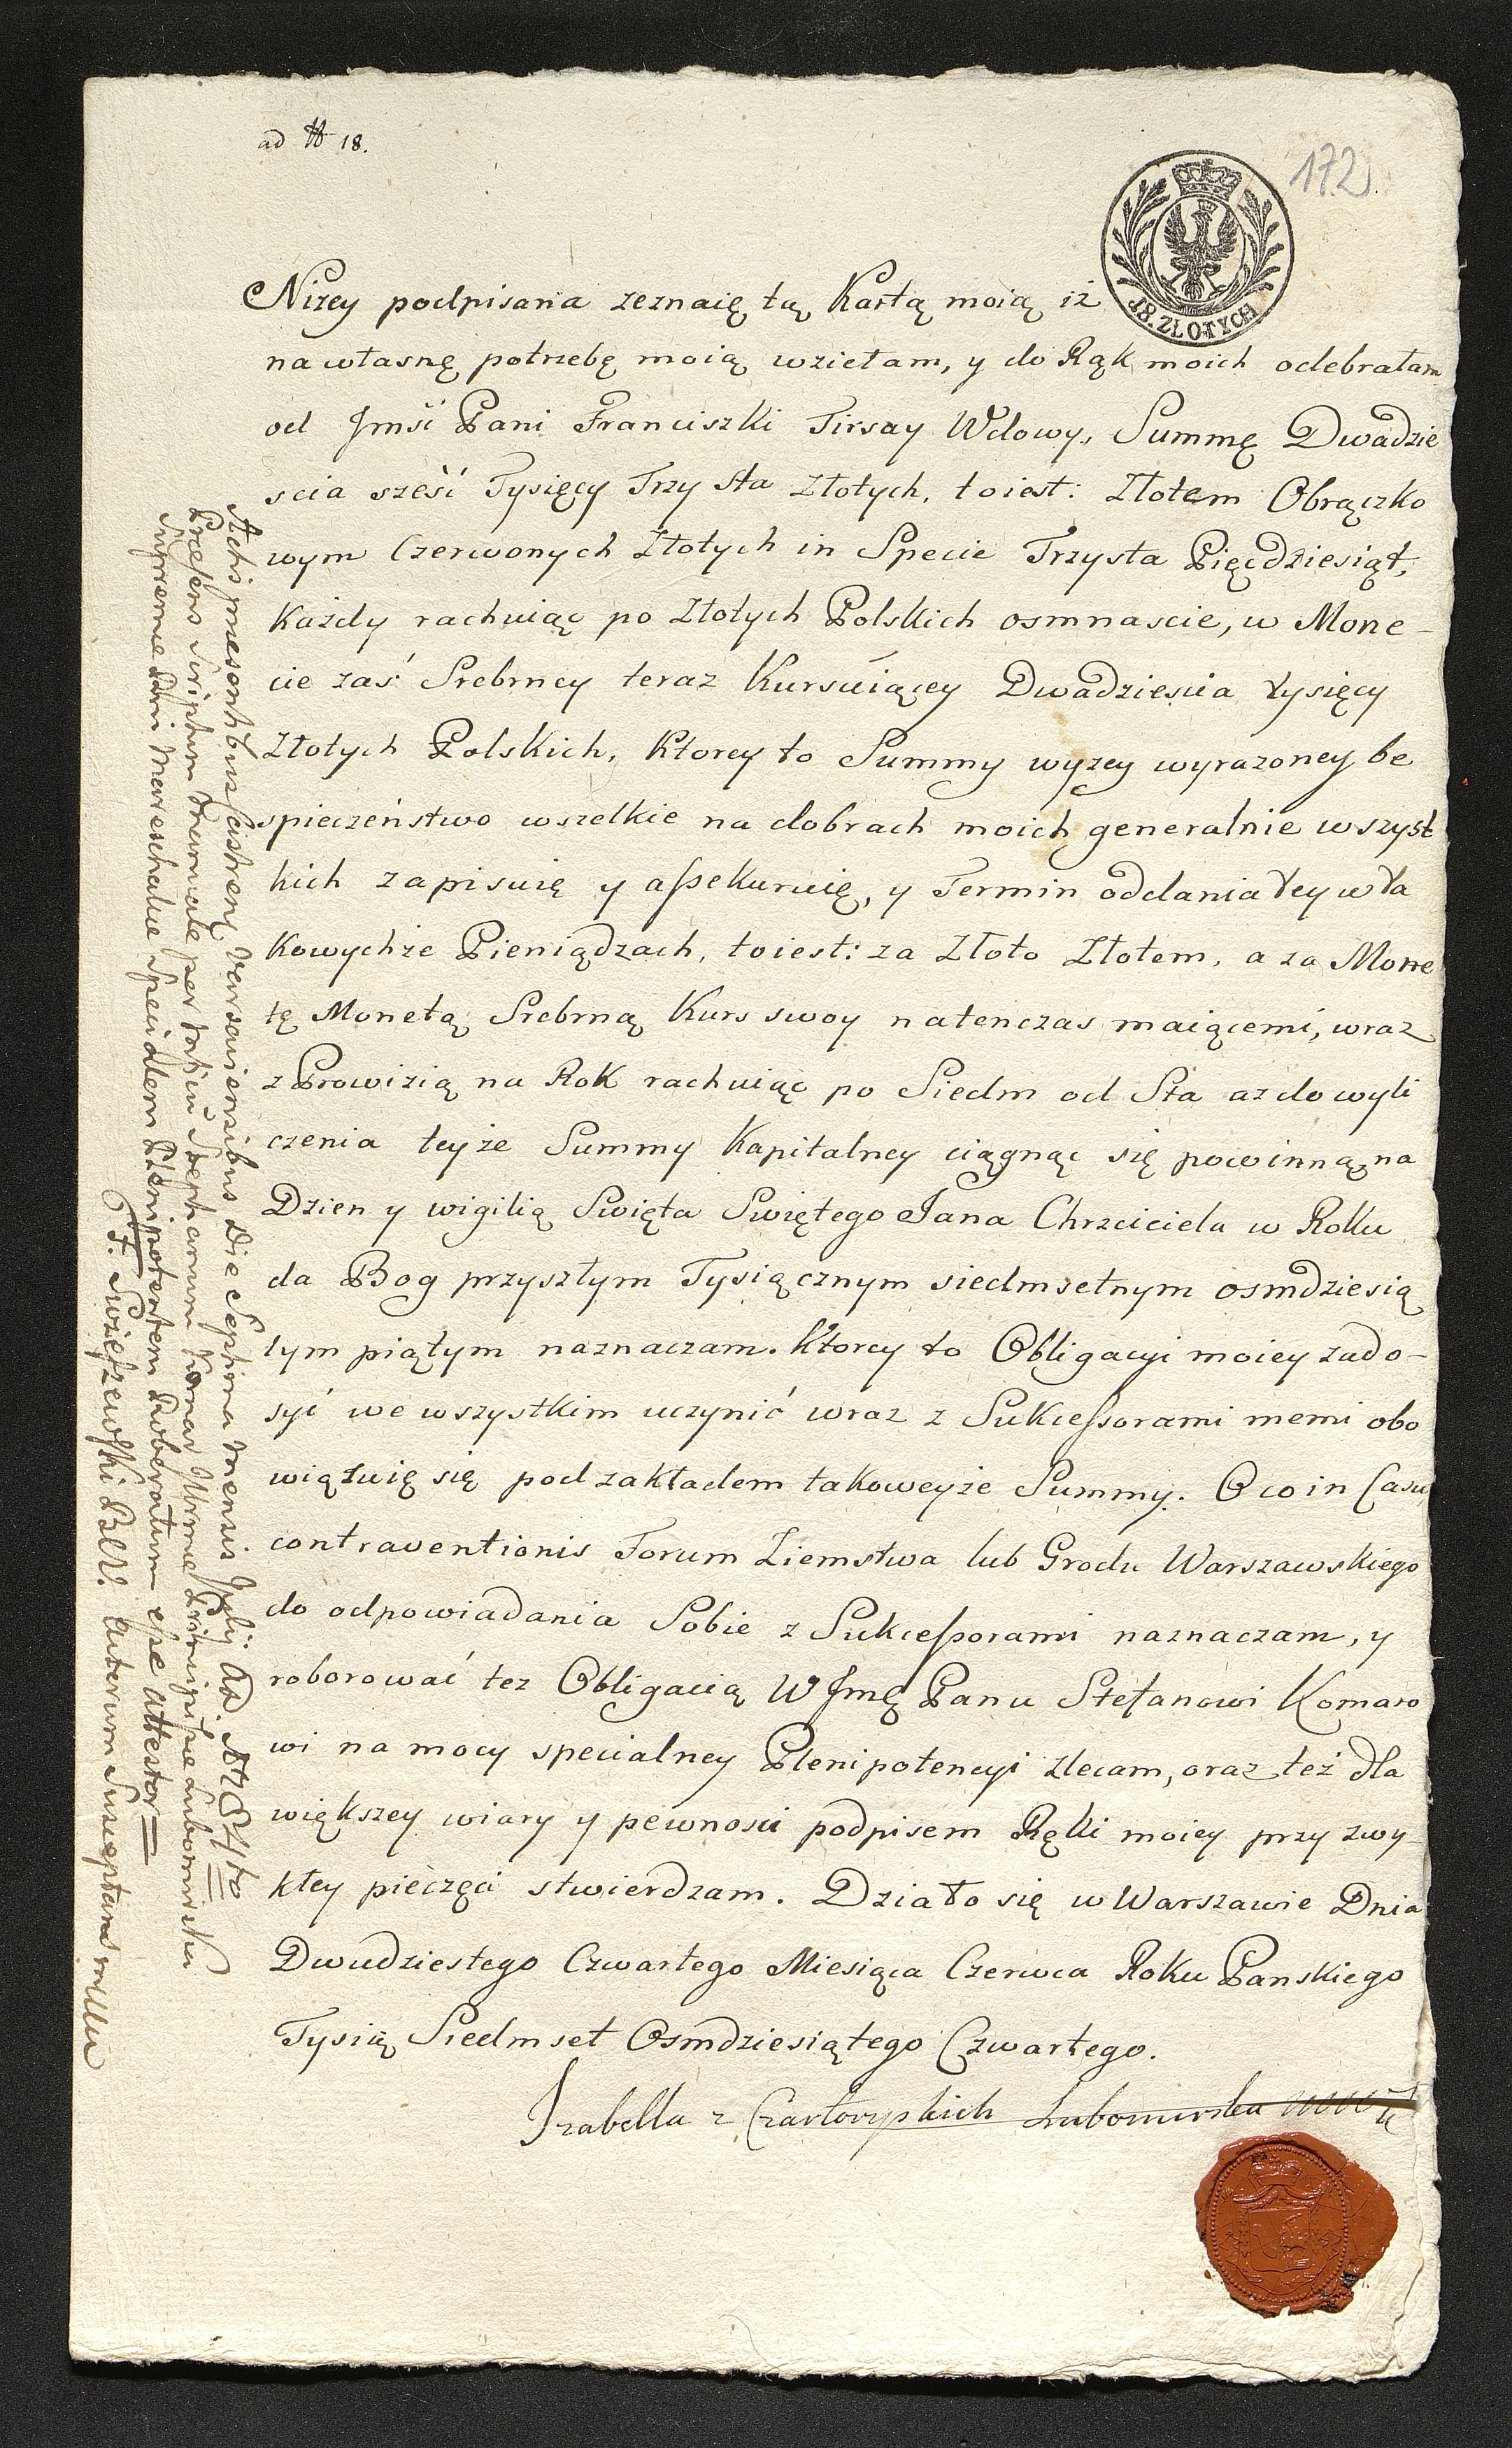 ad # 18.
172.
18. ZŁOTYCH
Nizey podpisana zeznaię tą Kartą moią iż
na własnę potrzebę moią wziełam, y do Rąk moich odebrałam
od Jmśi Pani Franciszki Tirsay Wdowy, Summę Dwadzie
scia sześć Tysięcy Trzy sta Złotych, toiest: Złotem Obrączko
wym Czerwonych Złotych in Specie Trzysta Pięcdziesiąt,
Każdy rachuiąc po Złotych Polskich osmnascie, w Mone-
cie zaś Srebrney teraz Kursuiącey Dwadziescia tysięcy
Złotych Polskich, Ktorey to Summy wyzey wyrazoney be
spieczeństwo wszelkie na dobrach moich generalnie wszyst
kich zapisuię y assekuruię, y Termin oddania tey w ta
kowychże Pieniądzach, toiest: za Złoto Złotem, a za Mone
tę Monetą Srebrną Kurs swoy natenczas maiącemi, wraz
z Prowizią na Rok rachuiąc po Siedm od Sta az do wyli
czenia teyże Summy Kapitalney ciągnąc się powinną, na
Dzien y wigilią Swięta Swiętego Jana Chrzciciela w Roku
da Bog przyszłym Tysiącznym siedmsetnym osmdziesią
tym piątym naznaczam. Ktorey to Obligacyi moiey zado-
syć we wszystkim uczynić wraz z Sukcessorami memi obo
wiązuię się pod zakładem takoweyże Summy. O co in Casu
contraventionis Forum Ziemstwa lub Grodu Warszawskiego
do odpowiadania Sobie z Sukcessorami naznaczam, y
roborować tez Obligacią W Jmę Panu Stefanowi Komaro
wi na mocy specialney Plenipotencyi zlecam, oraz też dla
większey wiary y pewnosci podpisem Ręki moiey przy zwy-
kłey pieczęci stwierdzam. Działo się w Warszawie Dnia
Dwudziestego Czwartego Miesiąca Czerwca Roku Panskiego
Tysią Siedmset Osmdziesiątego Czwartego.
Izabella z Czartoryskich Lubomirska
Actis præsentibus Castren Varsaviensibus Die Septima Mensis Julij AD. 1784to
Præsens Scriptum Manuale per Stephanum Komar Principissæ Lubomirska
Supremæ Mareschalcæ Specialem Plenipotentem Roboratum esse attestor
F. Swieszewski Actorum Susceptans mpp